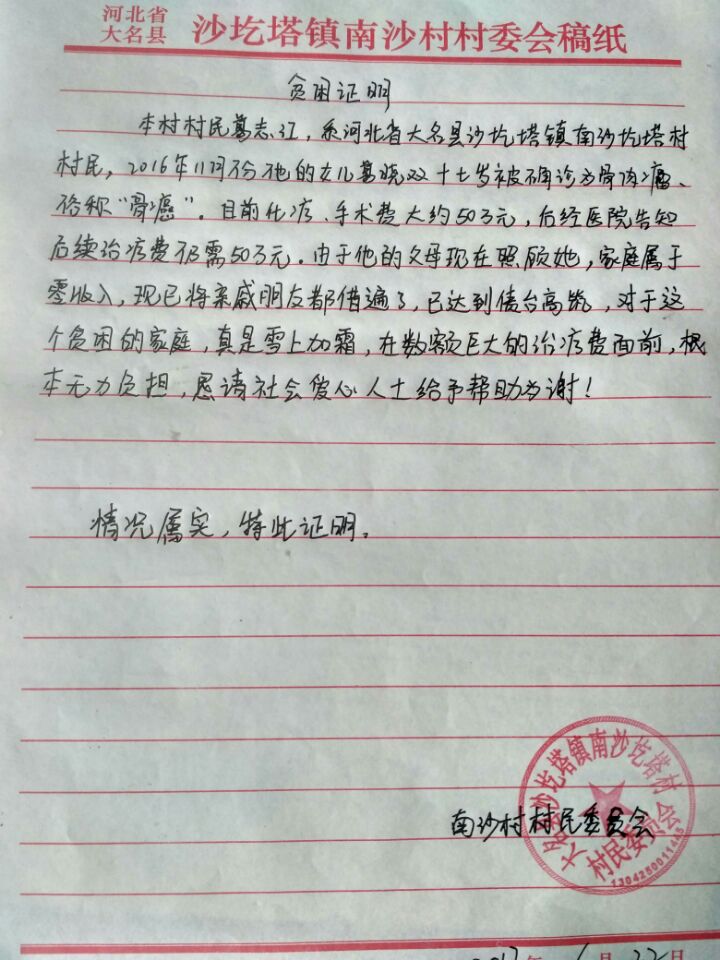 河北省
大名县
沙圪塔镇南沙村村委会稿纸
贫困证明
本村村民葛志江，系河北省大名县沙圪塔镇南沙圪塔村
村民，2016年11月份他的女儿葛晓双十七岁被确诊为骨肉瘤、
俗称“骨癌”。目前化疗、手术费大约50万元，后经医院告知
后续治疗费仍需50万元。由于他的父母现在照顾她，家庭属于
零收入，现已将亲戚朋友都借遍了，已达到债台高筑，对于这
个贫困的家庭，真是雪上加霜，在数额巨大的治疗费面前，根
本无力负担，恳请社会爱心人士给予帮助为谢！
情况属实，特此证明。
南沙村村民委员会
大名县沙圪塔镇南沙圪塔村
村民委员会
年 月 22日